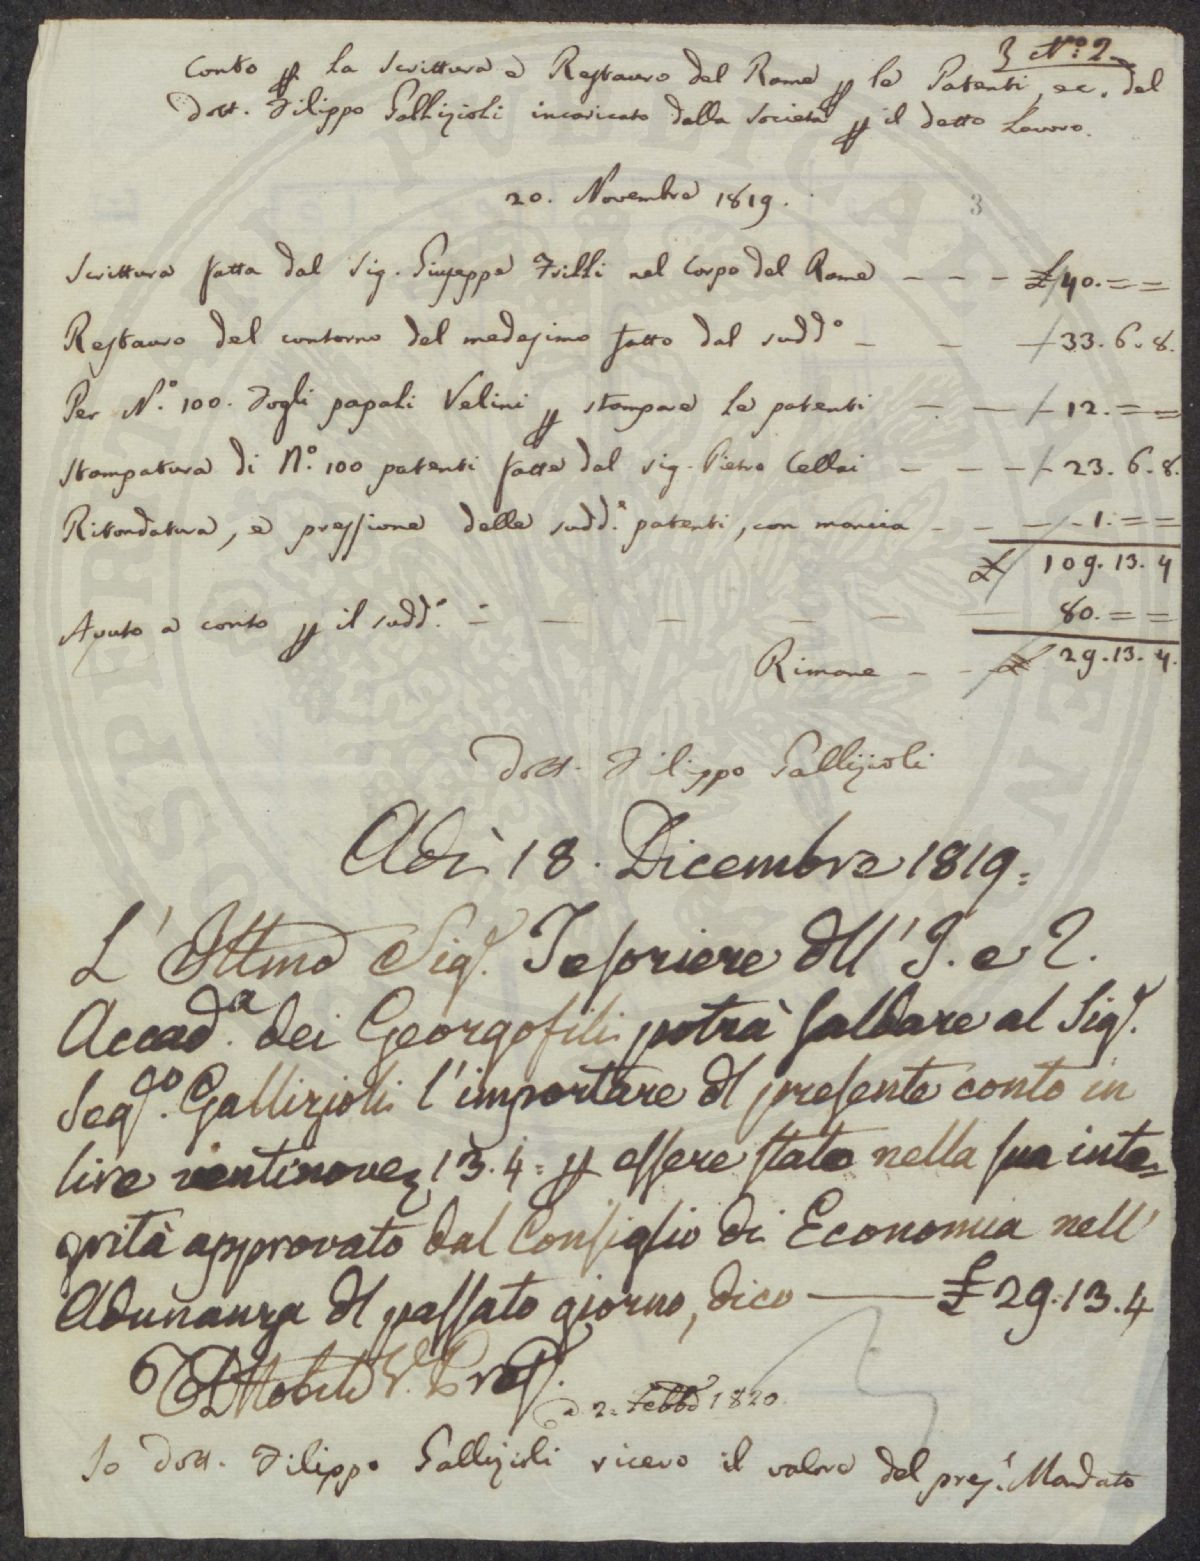 3 N.o 2.
Conto p la Scrittura e Restauro del Rame p le Patenti, ec. del
Dott. Filippo Gallizioli incaricato dalla Società p il detto Lavoro.
20. Novembre 1819.
3
Scrittura fatta dal Sig. Giuseppe Trilli nel Corpo del Rame - - - £ 40. = =
Restauro del contorno del medesimo fatto dal sudd.o - - - 33. 6. 8.
Per N.o 100. Fogli papali Velini p stampare le patenti - - - 12. = =
Stampatura di N.o 100 patenti fatte dal Sig. Pietro Cellai - - - 23. 6. 8.
Ritondatura, e pressione delle sudd.e patenti, con mancia - - - 1. = =
£ 109. 13. 4
Avuto a conto p il sudd.o = - - - - - 80. = =
Rimane - - £ 29. 13. 4.
Dott. Filippo Gallizioli
Adì 18. Dicembre 1819 =
L'Ittmo Sig.r Tesoriere dll' I. e R.
Accad.a dei Georgofili potrà saldare al Sig.r
Seg.rio Gallizioli l'importare dl presente conto in
lire ventinove, 13. 4 = p essere stato nella sua inte=
grità approvato dal Consiglio di Economia nell'
Adunanza dl passato giorno, dico —— £ 29. 13. 4
V. Pres.
a 2 = Febb.o 1820.
Io Dott. Filippo Gallizioli ricevo il valore del pres.e Mandato